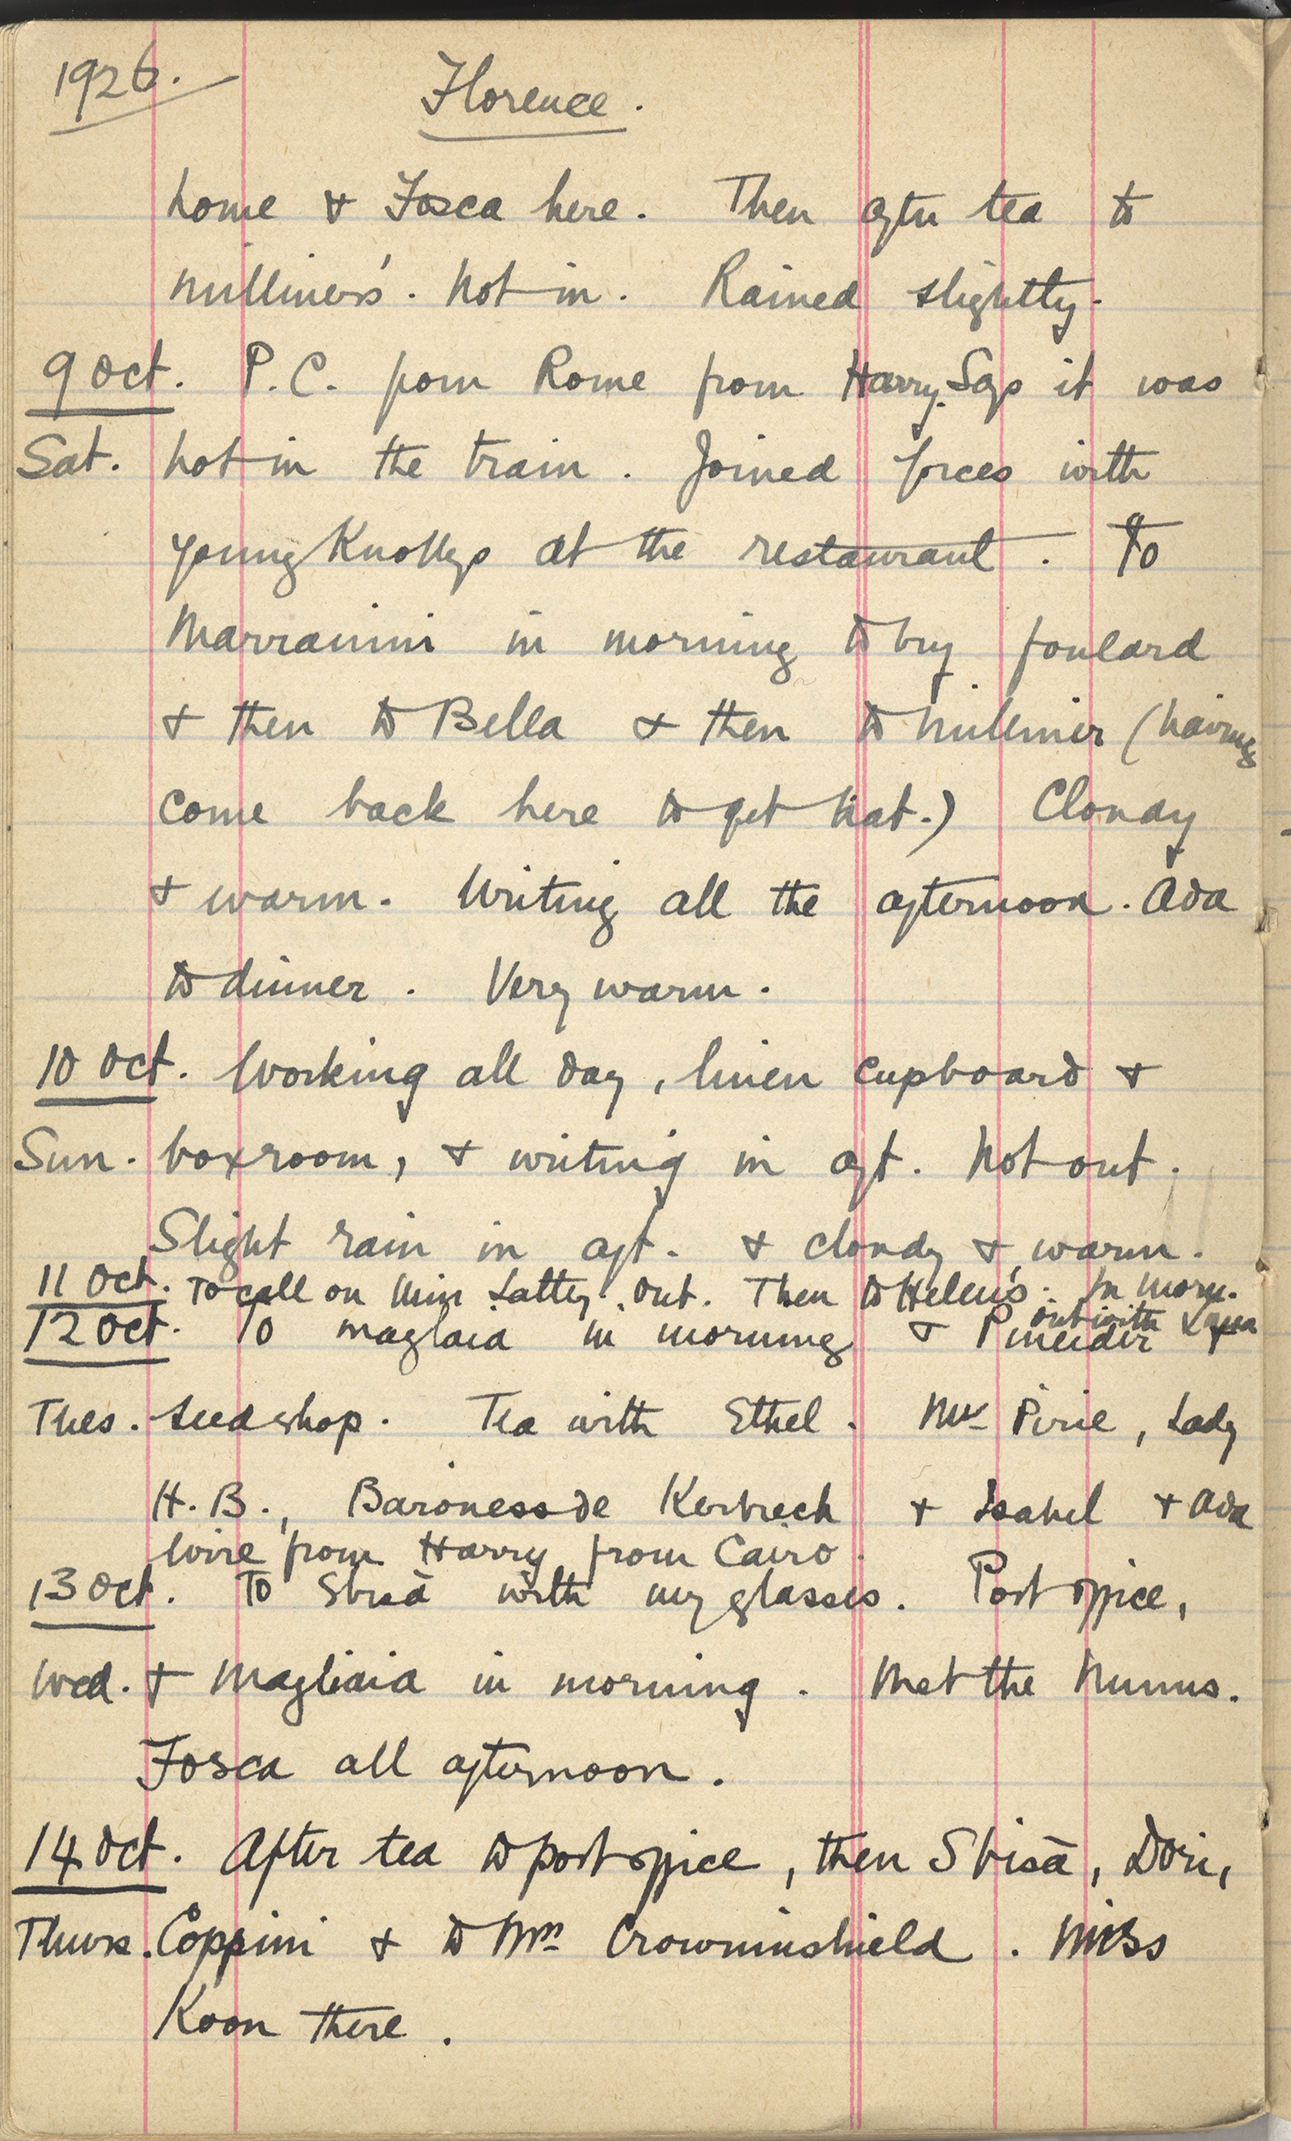 1926. Florence.
home & Fosca here. Then aftn tea to
milliner's. Not in. Rained slightly.
9 Oct. P.C. from Rome from Harry. Says it was
Sat. hot in the train. Joined forces with
young Knollys at the restaurant. To
Marranini in morning to buy foulard
& then to Bella & then to milliner (having
come back here to get hat.) Cloudy
& warm. Writing all the afternoon. Ada
to dinner. Very warm.
10 Oct. Working all day, linen cupboard &
Sun. boxroom, & writing in aft. Not out.
Slight rain in aft. & cloudy & warm.
11 Oct. To call on Miss Lattey. Out. Then to Helen's. In morn.
out with
12 Oct. To maglaia in morning & Pineider &
Tues. seedshop. Tea with Ethel. Mrs Pirie, Lady
H.B., Baroness de Kerbrech & Isabel & Ada
Wire from Harry from Cairo.
13 Oct. To Sbisà with my glasses. Post office,
Wed. & Magliaia in morning. Met the Nunns.
Fosca all afternoon.
14 Oct. After tea to post office, then Sbisà, Dori,
Thurs. Coppini & to Mrs Crowninshield. Miss
Koon there.